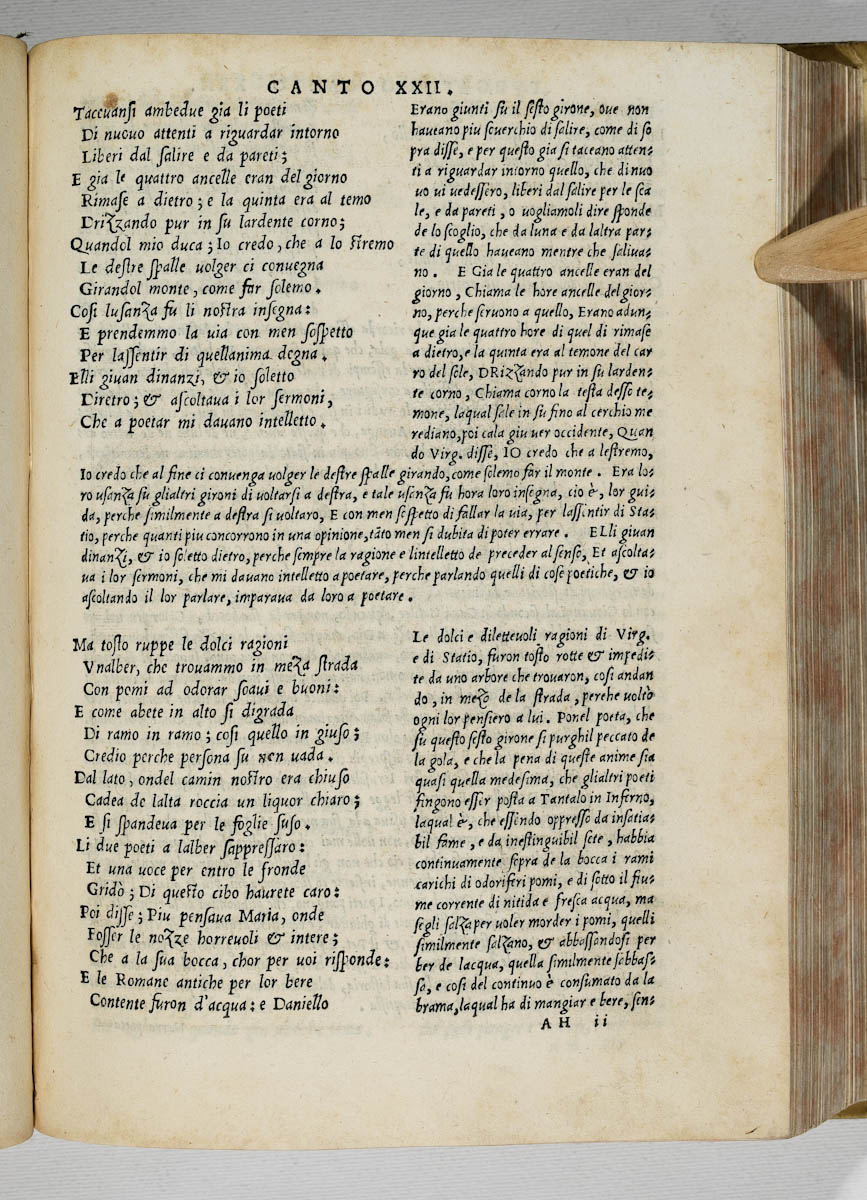 CANTO XXII.
Taceuansi ambedue gia li poeti
Di nuouo attenti a riguardar intorno
Liberi dal salire e da pareti;
E gia le quattro ancelle eran del giorno
Rimase a dietro; e la quinta era al temo
Drizzando pur in su lardente corno;
Quandol mio duca; Io credo, che a lo stremo
Le destre spalle uolger ci conuegna
Girandol monte, come far solemo.
Cosi lusanza fu li nostra insegna:
E prendemmo la uia con men sospetto
Per lassentir di quellanima degna.
Elli giuan dinanzi, & io soletto
Diretro; & ascoltaua i lor sermoni,
Che a poetar mi dauano intelletto.
Erano giunti su il sesto girone, oue non
haueano piu souerchio di salire, come di so
pra disse, e per questo gia si taceano atten-
ti a riguardar intorno quello, che di nuo
uo ui uedessero, liberi dal salire per le sca
le, e da pareti, o uogliamoli dire sponde
de lo scoglio, che da luna e da laltra par-
te di quello haueano mentre che saliua-
no. E Gia le quattro ancelle eran del
giorno, Chiama le hore ancelle del gior-
no, perche seruono a quello, Erano adun-
que gia le quattro hore di quel di rimase
a dietro, e la quinta era al temone del car
ro del sole, DRizzando pur in su larden-
te corno, Chiama corno la testa desso te-
mone, laqual sale in su fino al cerchio me
rediano, poi cala giu uer occidente, Quan
do Virg. disse, IO credo che a lestremo,
Io credo che al fine ci conuenga uolger le destre spalle girando, come solemo far il monte. Era lo-
ro usanza su glialtri gironi di uoltarsi a destra, e tale usanza fu hora loro insegna, cio è, lor gui-
da, perche similmente a destra si uoltaro, E con men sospetto di fallar la uia, per lassentir di Sta-
tio, perche quanti piu concorrono in una opinione, tāto men si dubita di poter errare. ELli giuan
dinanzi, & io soletto dietro, perche sempre la ragione e lintelletto de preceder al senso, Et ascolta-
ua i lor sermoni, che mi dauano intelletto a poetare, perche parlando quelli di cose poetiche, & io
ascoltando il lor parlare, imparaua da loro a poetare.
Ma tosto ruppe le dolci ragioni
Vnalber, che trouammo in meza strada
Con pomi ad odorar soaui e buoni:
E come abete in alto si digrada
Di ramo in ramo; cosi quello in giuso;
Credio perche persona su non uada.
Dal lato, ondel camin nostro era chiuso
Cadea de lalta roccia un liquor chiaro;
E si spandeua per le foglie suso.
Li due poeti a lalber sappressaro:
Et una uoce per entro le fronde
Gridò; Di questo cibo haurete caro:
Poi disse; Piu pensaua Maria, onde
Fosser le nozze horreuoli & intere;
Che a la sua bocca, chor per uoi risponde:
E le Romane antiche per lor bere
Contente furon d'acqua: e Daniello
Le dolci e diletteuoli ragioni di Virg.
e di Statio, furon tosto rotte & impedi-
te da uno arbore che trouaron, cosi andan
do, in mezo de la strada, perehe uoltò
ogni lor pensiero a lui. Ponel poeta, che
su questo sesto girone si purghil peccato de
la gola, e che la pena di queste anime sia
quasi quella medesima, che glialtri poeti
fingono esser posta a Tantalo in Inferno,
laqual è, che essendo oppresso da insatia-
bil fame, e da inestinguibil sete, habbia
continuamente sopra de la bocca i rami
carichi di odoriferi pomi, e di sotto il fiu-
me corrente di nitida e fresca acqua, ma
segli salza per uoler morder i pomi, quelli
similmente salzano, & abbassandosi per
ber de lacqua, quella similmente sabbas-
sa, e cosi del continuo è consumato da la
brama, laqual ha di mangiar e bere, sen-
AH ii